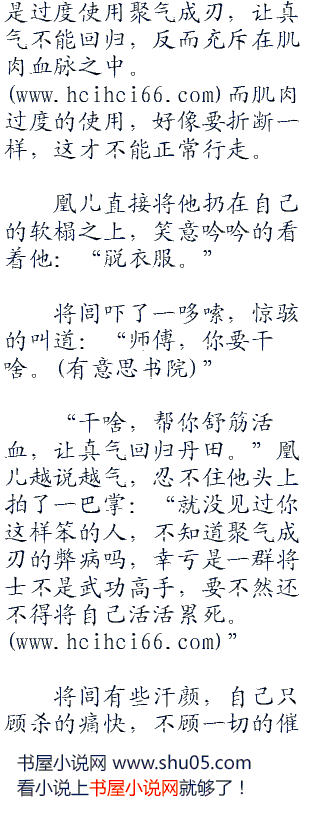 是过度使用聚气成刃，让真
气不能回归，反而充斥在肌
肉血脉之中。
(www.hcihci66.com)而肌肉
过度的使用，好像要折断一
样，这才不能正常行走。
凰儿直接将他扔在自己
的软榻之上，笑意吟吟的看
着他：“脱衣服。”
将闾吓了一哆嗦，惊骇
的叫道：“师傅，你要干
啥。(有意思书院)”
“干啥，帮你舒筋活
血，让真气回归丹田。”凰
儿越说越气，忍不住他头上
拍了一巴掌：“就没见过你
这样笨的人，不知道聚气成
刃的弊病吗，幸亏是一群将
士不是武功高手，要不然还
不得将自己活活累死。
(www.hcihci66.com)”
将闾有些汗颜，自己只
顾杀的痛快，不顾一切的催
书屋小说网 www.shu05.com
看小说上书屋小说网就够了！